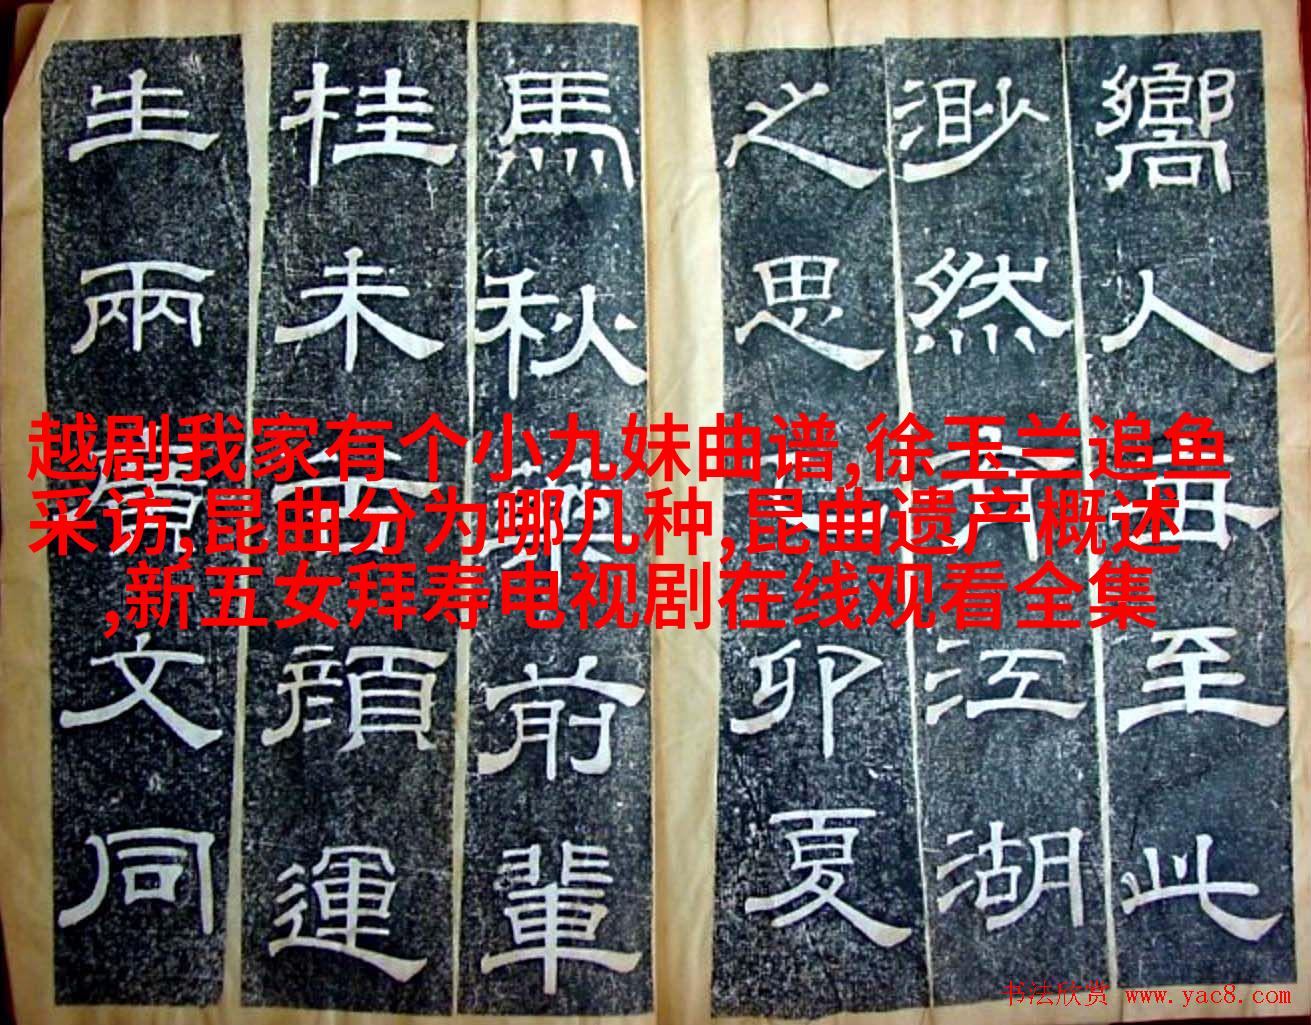 嚮人至此
渺然江湖
之思卯夏
馬秋藥前輩
桂未谷顔運
生兩廣文同
越剧我家有个小九妹曲谱,徐玉兰追鱼
采访,昆曲分为哪几种,昆曲遗产概述
,新五女拜寿电视剧在线观看全集
书法欣赏 www.yac8.com